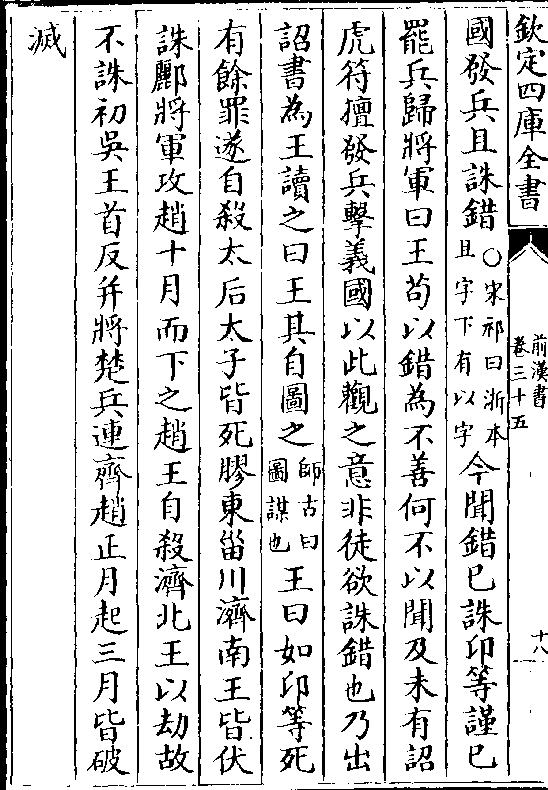 欽定四庫全書
前漢書
卷三十五
十八
國發兵且誅錯○宋祁曰浙本且字下有以字今聞錯已誅卬等謹已
罷兵歸將軍曰王苟以錯為不善何不以聞及未有詔
虎符擅發兵擊義國以此觀之意非徒欲誅錯也乃出
詔書為王讀之曰王其自圖之師古曰圖謀也王曰如卬等死
有餘罪遂自殺太后太子皆死膠東甾川濟南王皆伏
誅酈將軍攻趙十月而下之趙王自殺濟北王以劫故
不誅初吳王首反并將楚兵連齊趙正月起三月皆破
滅